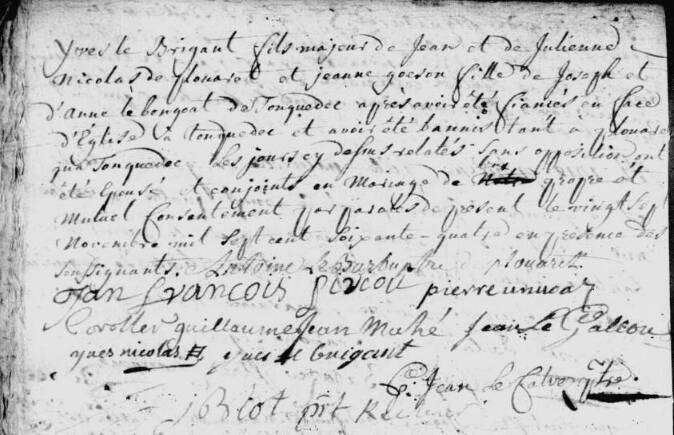 yves le Brigant fils majeur de Jean et de Julienne
Nicolas de plouaret et jeanne goeson fille de Joseph et
d'Anne le bongoat de Tonquedec après avoir été fiancés en face
d'Eglise à tonquedec et avoir été bannis tant à plouaret
qua Tonquedec les jours cy dessus relatés sans opposition ont
été Epousé et conjoints en Mariage de leur propre et
Mutuel Consentement par paroles de present le vingt sept
Novembre mil sept cent soixante-quatre en presence des
soussignants. Antoine le ptre d plouaret
Jan François pierre
guillaume Jean Mahé Jean le
yves nicolas yves le brigant
Jean le Calvez ptre
ptre Recteur